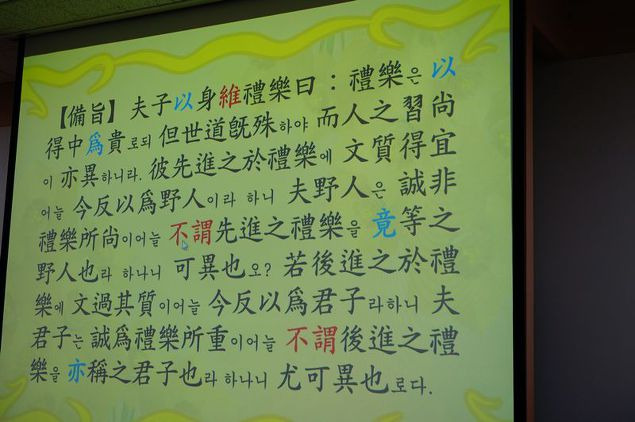 【備旨】 夫子以身維禮樂曰：禮樂은 以
得中爲貴로되 但世道旣殊하야 而人之習尙
이 亦異하니라. 彼先進之於禮樂에 文質得宜
어늘 今反以爲野人이라 하니 夫野人은 誠非
禮樂所尙이어늘 不謂先進之禮樂을 竟等之
野人也라 하나니 可異也오? 若後進之於禮
樂에 文過其質이어늘 今反以爲君子라하니 夫
君子는 誠爲禮樂所重이어늘 不謂後進之禮
樂을 亦稱之君子也라 하나니 尤可異也로다.